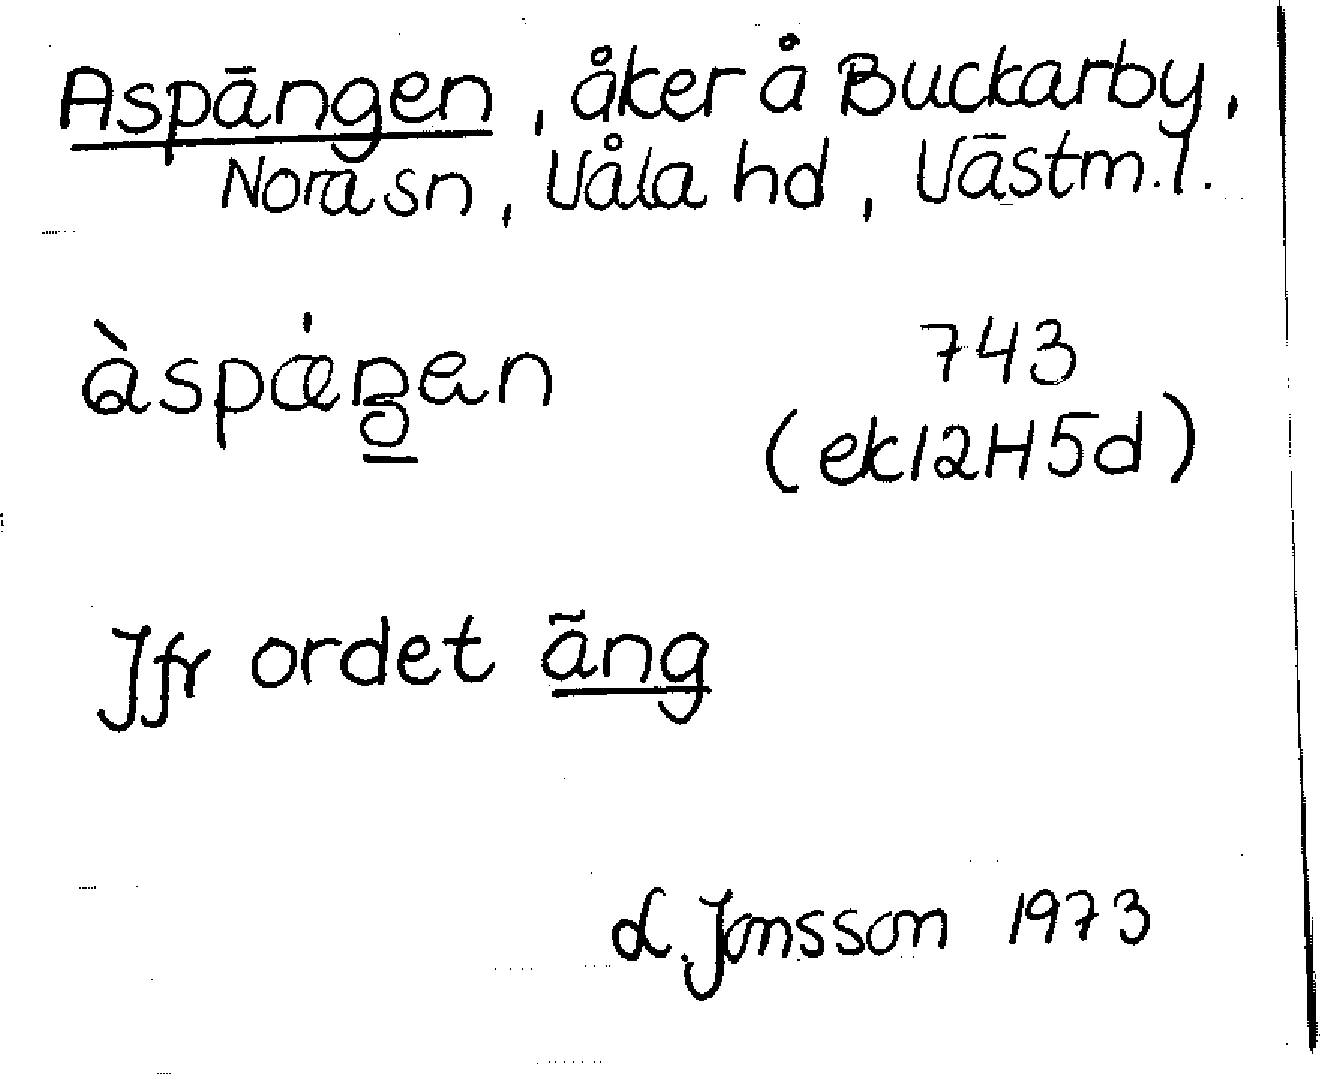 Aspängen, åker å Buckarby,
Nora sn, Våla hd, Västm. l.
àspǽŋen
743
(ek 12H5d)
Jfr ordet äng
L. Jonsson 1973